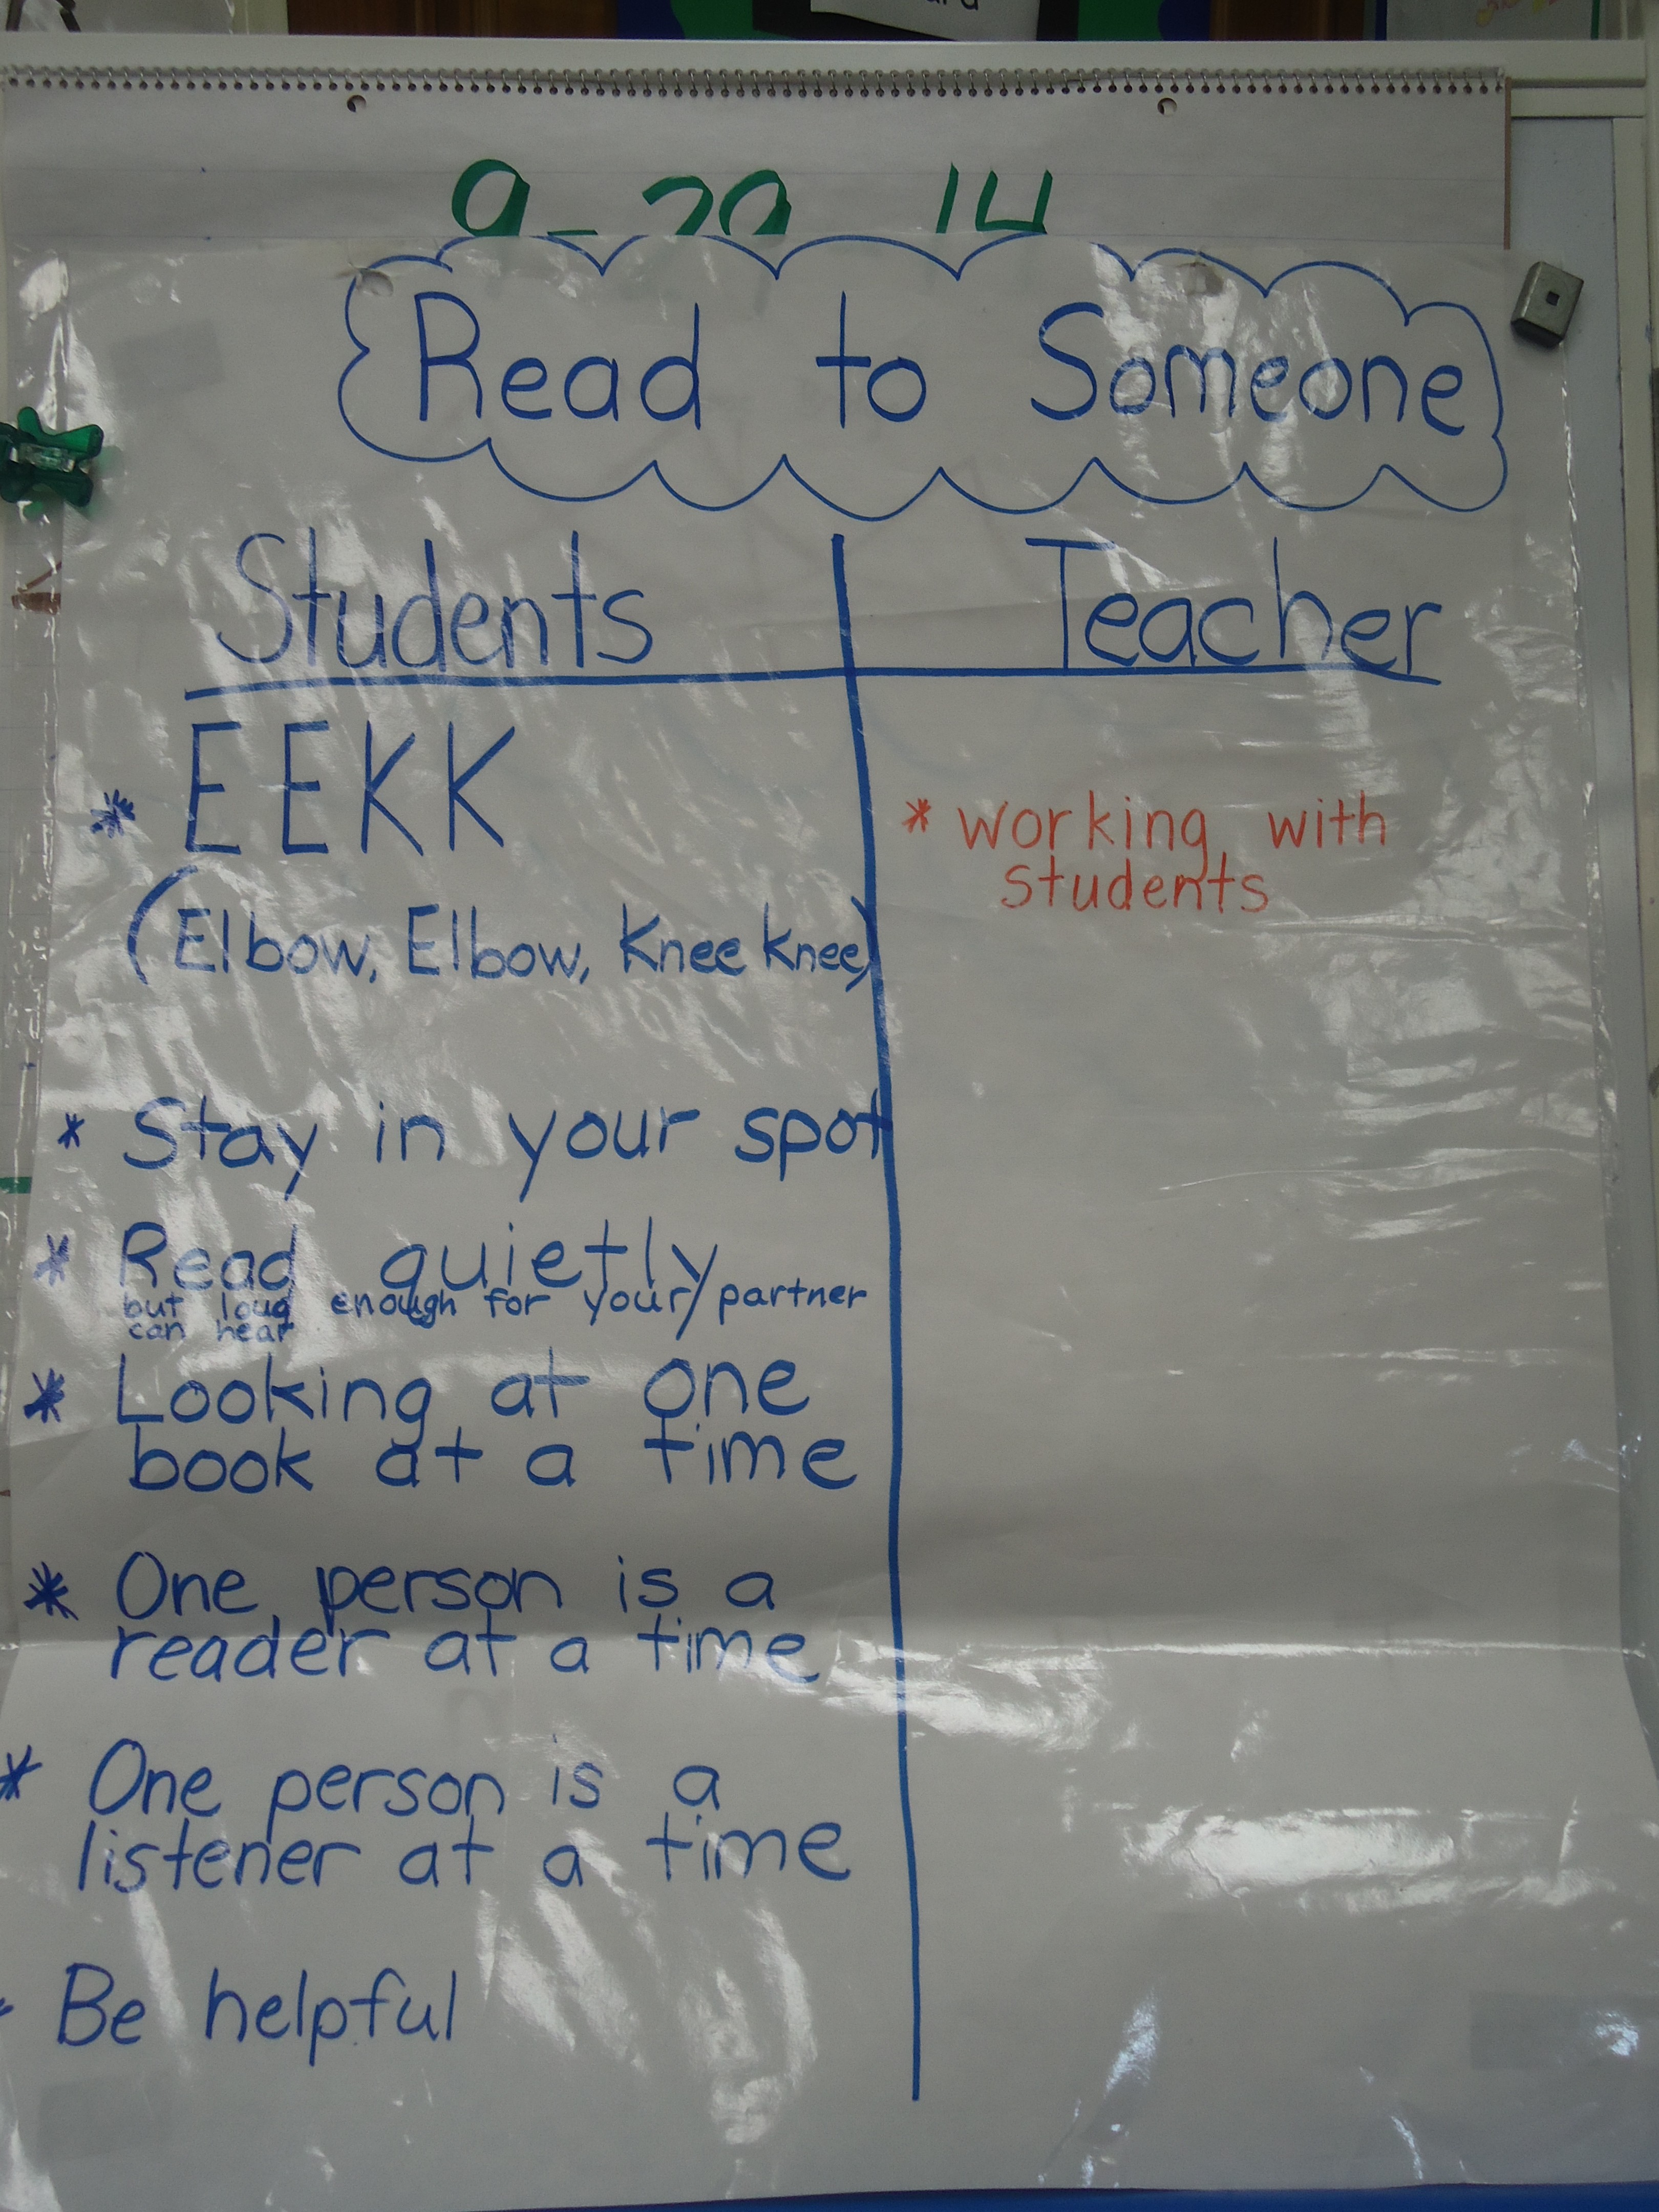 Read to Someone
Students Teacher
* EEKK
(Elbow, Elbow, Knee knee)
* Stay in your spot
* Read quietly
but loud enough for your partner
can hear
* Looking at one
book at a time
* One person is a
reader at a time
* One person is a
listener at a time
Be helpful
* working with
students